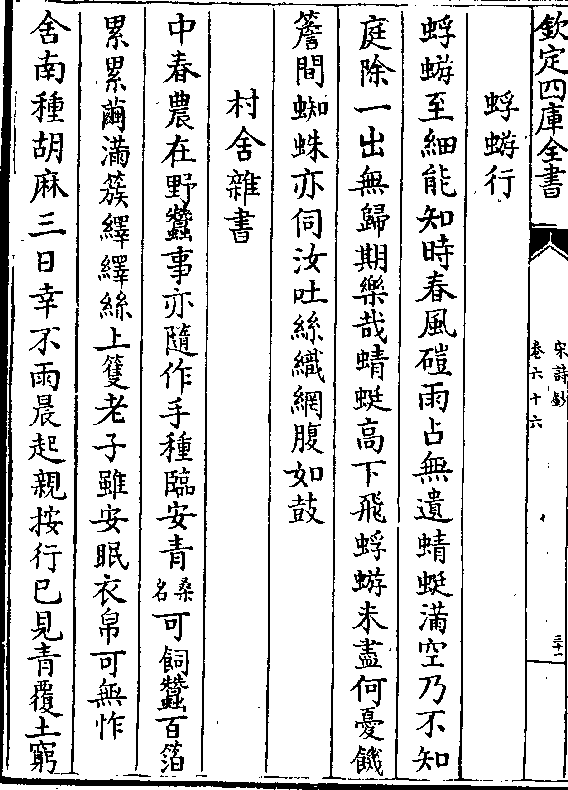 欽定四庫全書
宋詩鈔
卷六十六
三十一
蜉蝣行
蜉蝣至細能知時春風磑雨占無遺蜻蜓滿空乃不知
庭除一出無歸期樂哉蜻蜓高下飛蜉蝣未盡何憂饑
簷間蜘蛛亦伺汝吐絲織網腹如鼓
村舍雜書
中春農在野蠶事亦隨作手種臨安青桑名可飼蠶百箔
累累繭滿簇繹繹絲上籆老子雖安眠衣帛可無怍
舍南種胡麻三日幸不雨晨起親按行已見青覆土窮